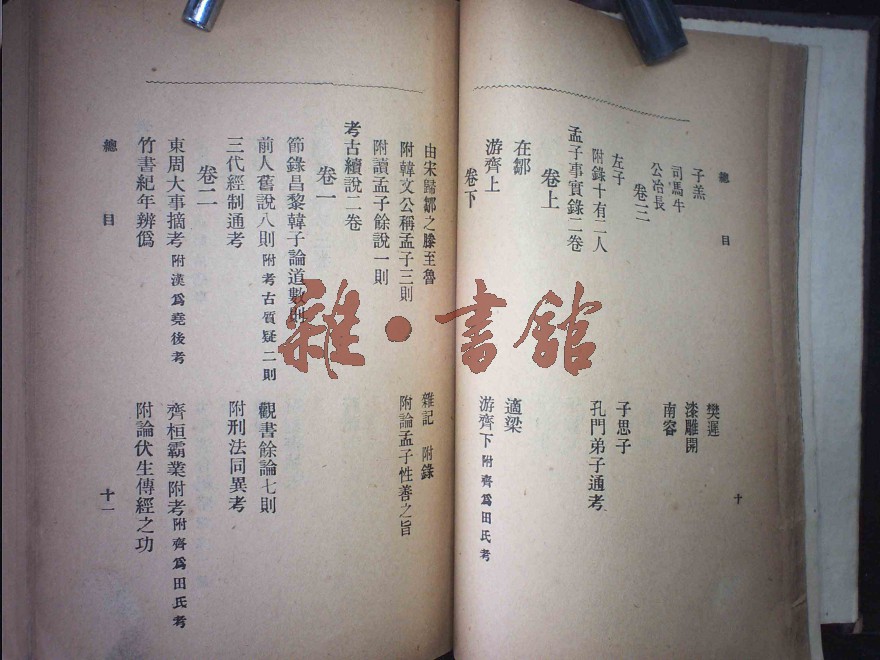 總目
十
子羔
樊遲
司馬牛
漆雕開
公冶長
南容
卷三
左子
子思子
附錄十有二人
孔門弟子通考
孟子事實錄二卷
卷上
在鄒
適梁
游齊上
游齊下 附齊爲田氏考
卷下
由宋歸鄒之滕至魯
雜記 附錄
附韓文公稱孟子三則
附論孟子性善之旨
附讀孟子餘說一則
考古續說二卷
卷一
節錄昌黎韓子論道數則
觀書餘論七則
前人舊說八則 附考古質疑二則
三代經制通考
附刑法同異考
卷二
東周大事摘考 附漢爲堯後考
齊桓霸業附考 附齊爲田氏考
竹書紀年辨僞
附論伏生傳經之功
總目
十一
雜·書館